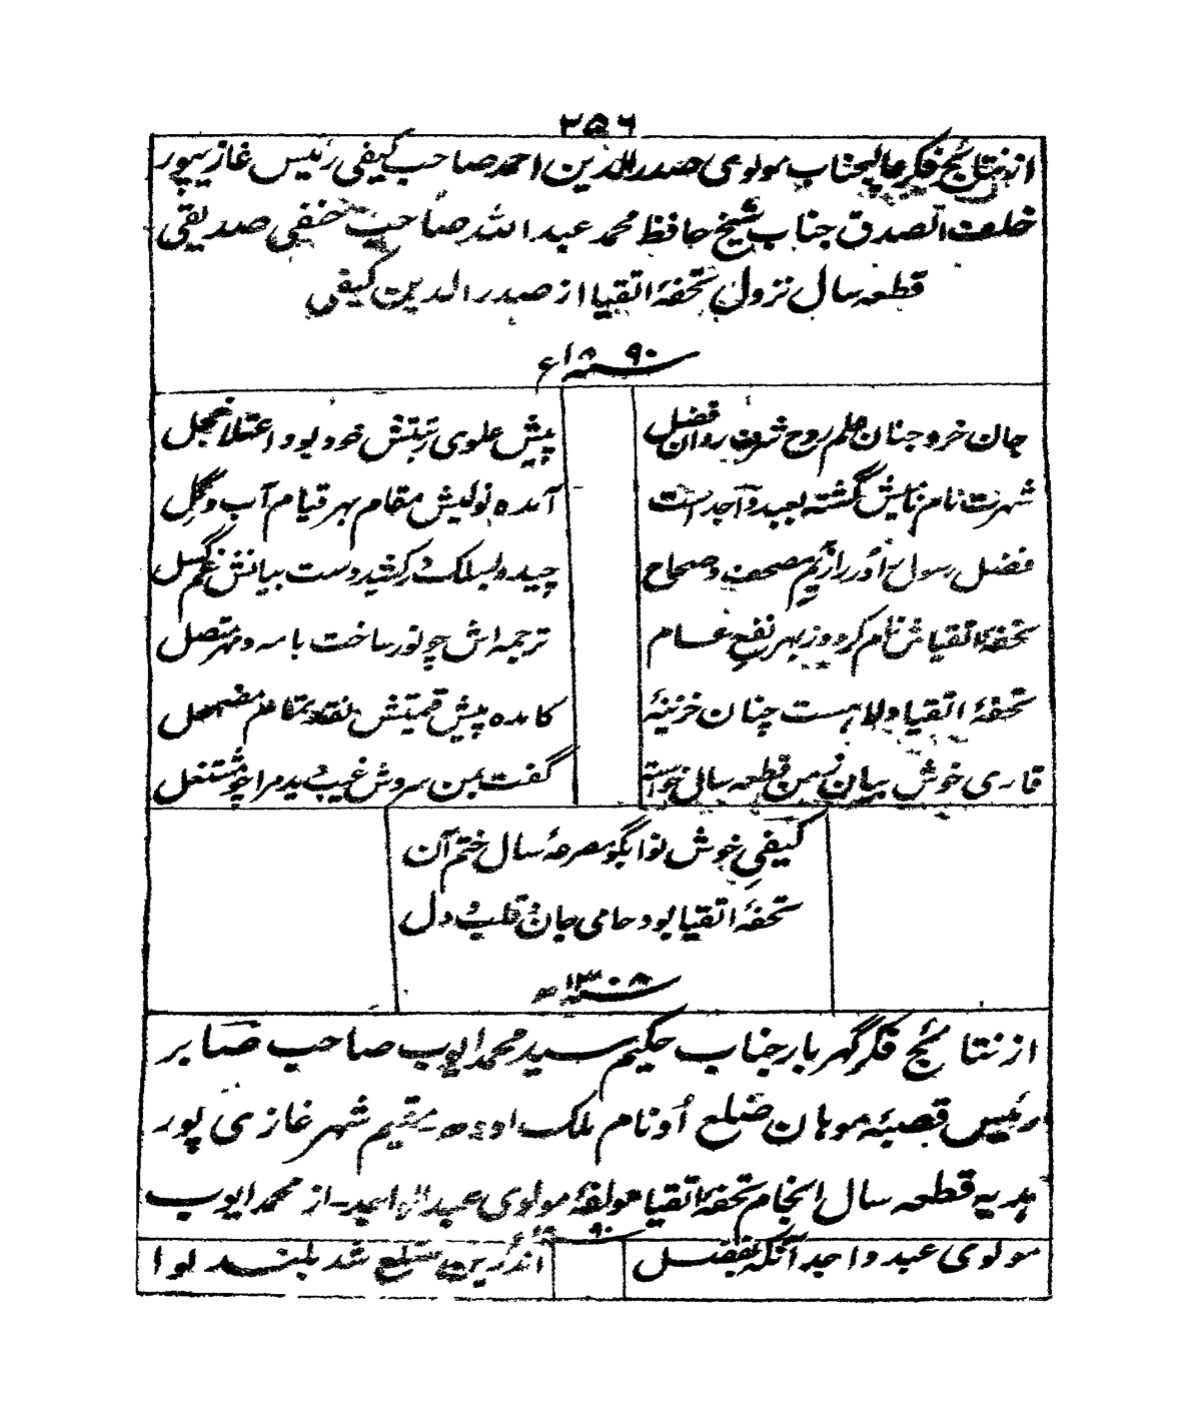 ۲۵۶
از نتائج فکر عالیجناب مولوی صدرالدین احمد صاحب کیفی رئیس غازیپور
خلف الصدق جناب شیخ حافظ محمد عبداللہ صاحب حنفی صدیقی
قطعہ سال نزول تحفۂ اتقیا از صدرالدین کیفی
۱۸۹۰ء
جان خرد جنان علم روح شرف روان فضل پیش علوی رتبتش خود بود اعتلا خجل
شہرت نام نامیش گشتہ بعبد واجد است آمدہ نولیش مقام بہر قیام آب و گل
فضل رسول را در از یم مصحف و صحاح چیدہ بسلک در کشید دست بیانش غم گسل
تحفۂ اتقیاش نام کرد و ز بہر نفع عام ترجمہ اش چو نور ساخت با مہ و مہر متصل
تحفۂ اتقیا ولا ہست چنان خزینۂ کامدہ پیش قیمتش نقد مضمحل
قاری خوش بیان ز من قطعہ سال خواستہ گفت بمن سروش غیب دید مرا چو مشتغل
کیفی خوش نوا بگو مصرعۂ سال ختم آن
تحفۂ اتقیا بود حامی جان و قلب و دل
۱۳۰۸ھ
از نتائج فکر گہر بار جناب حکیم سید محمد ایوب صاحب صابر
رئیس قصبۂ موہان ضلع اونام ملک اودھ مقیم شہر غازی پور
ہدیہ قطعہ سال انجام تحفۂ اتقیا مولفۂ مولوی عبدالواجد از محمد ایوب
۹۰
مولوی عبد واجد آنکہ بفضل اندرین ضلع شد بلند لوا